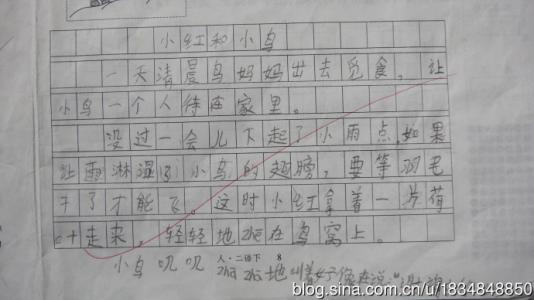 小红和小鸟
一天清晨鸟妈妈出去觅食，让
小鸟一个人待在家里。
没过一会儿下起了小雨点，如果
让雨淋湿了小鸟的翅膀，要等羽毛
干了才能飞。这时小红拿着一片荷
叶走来，轻轻地放在鸟窝上。
人·二语下 8
小鸟叽叽地叫好像在说："
blog.sina.com.cn/u/1834848850